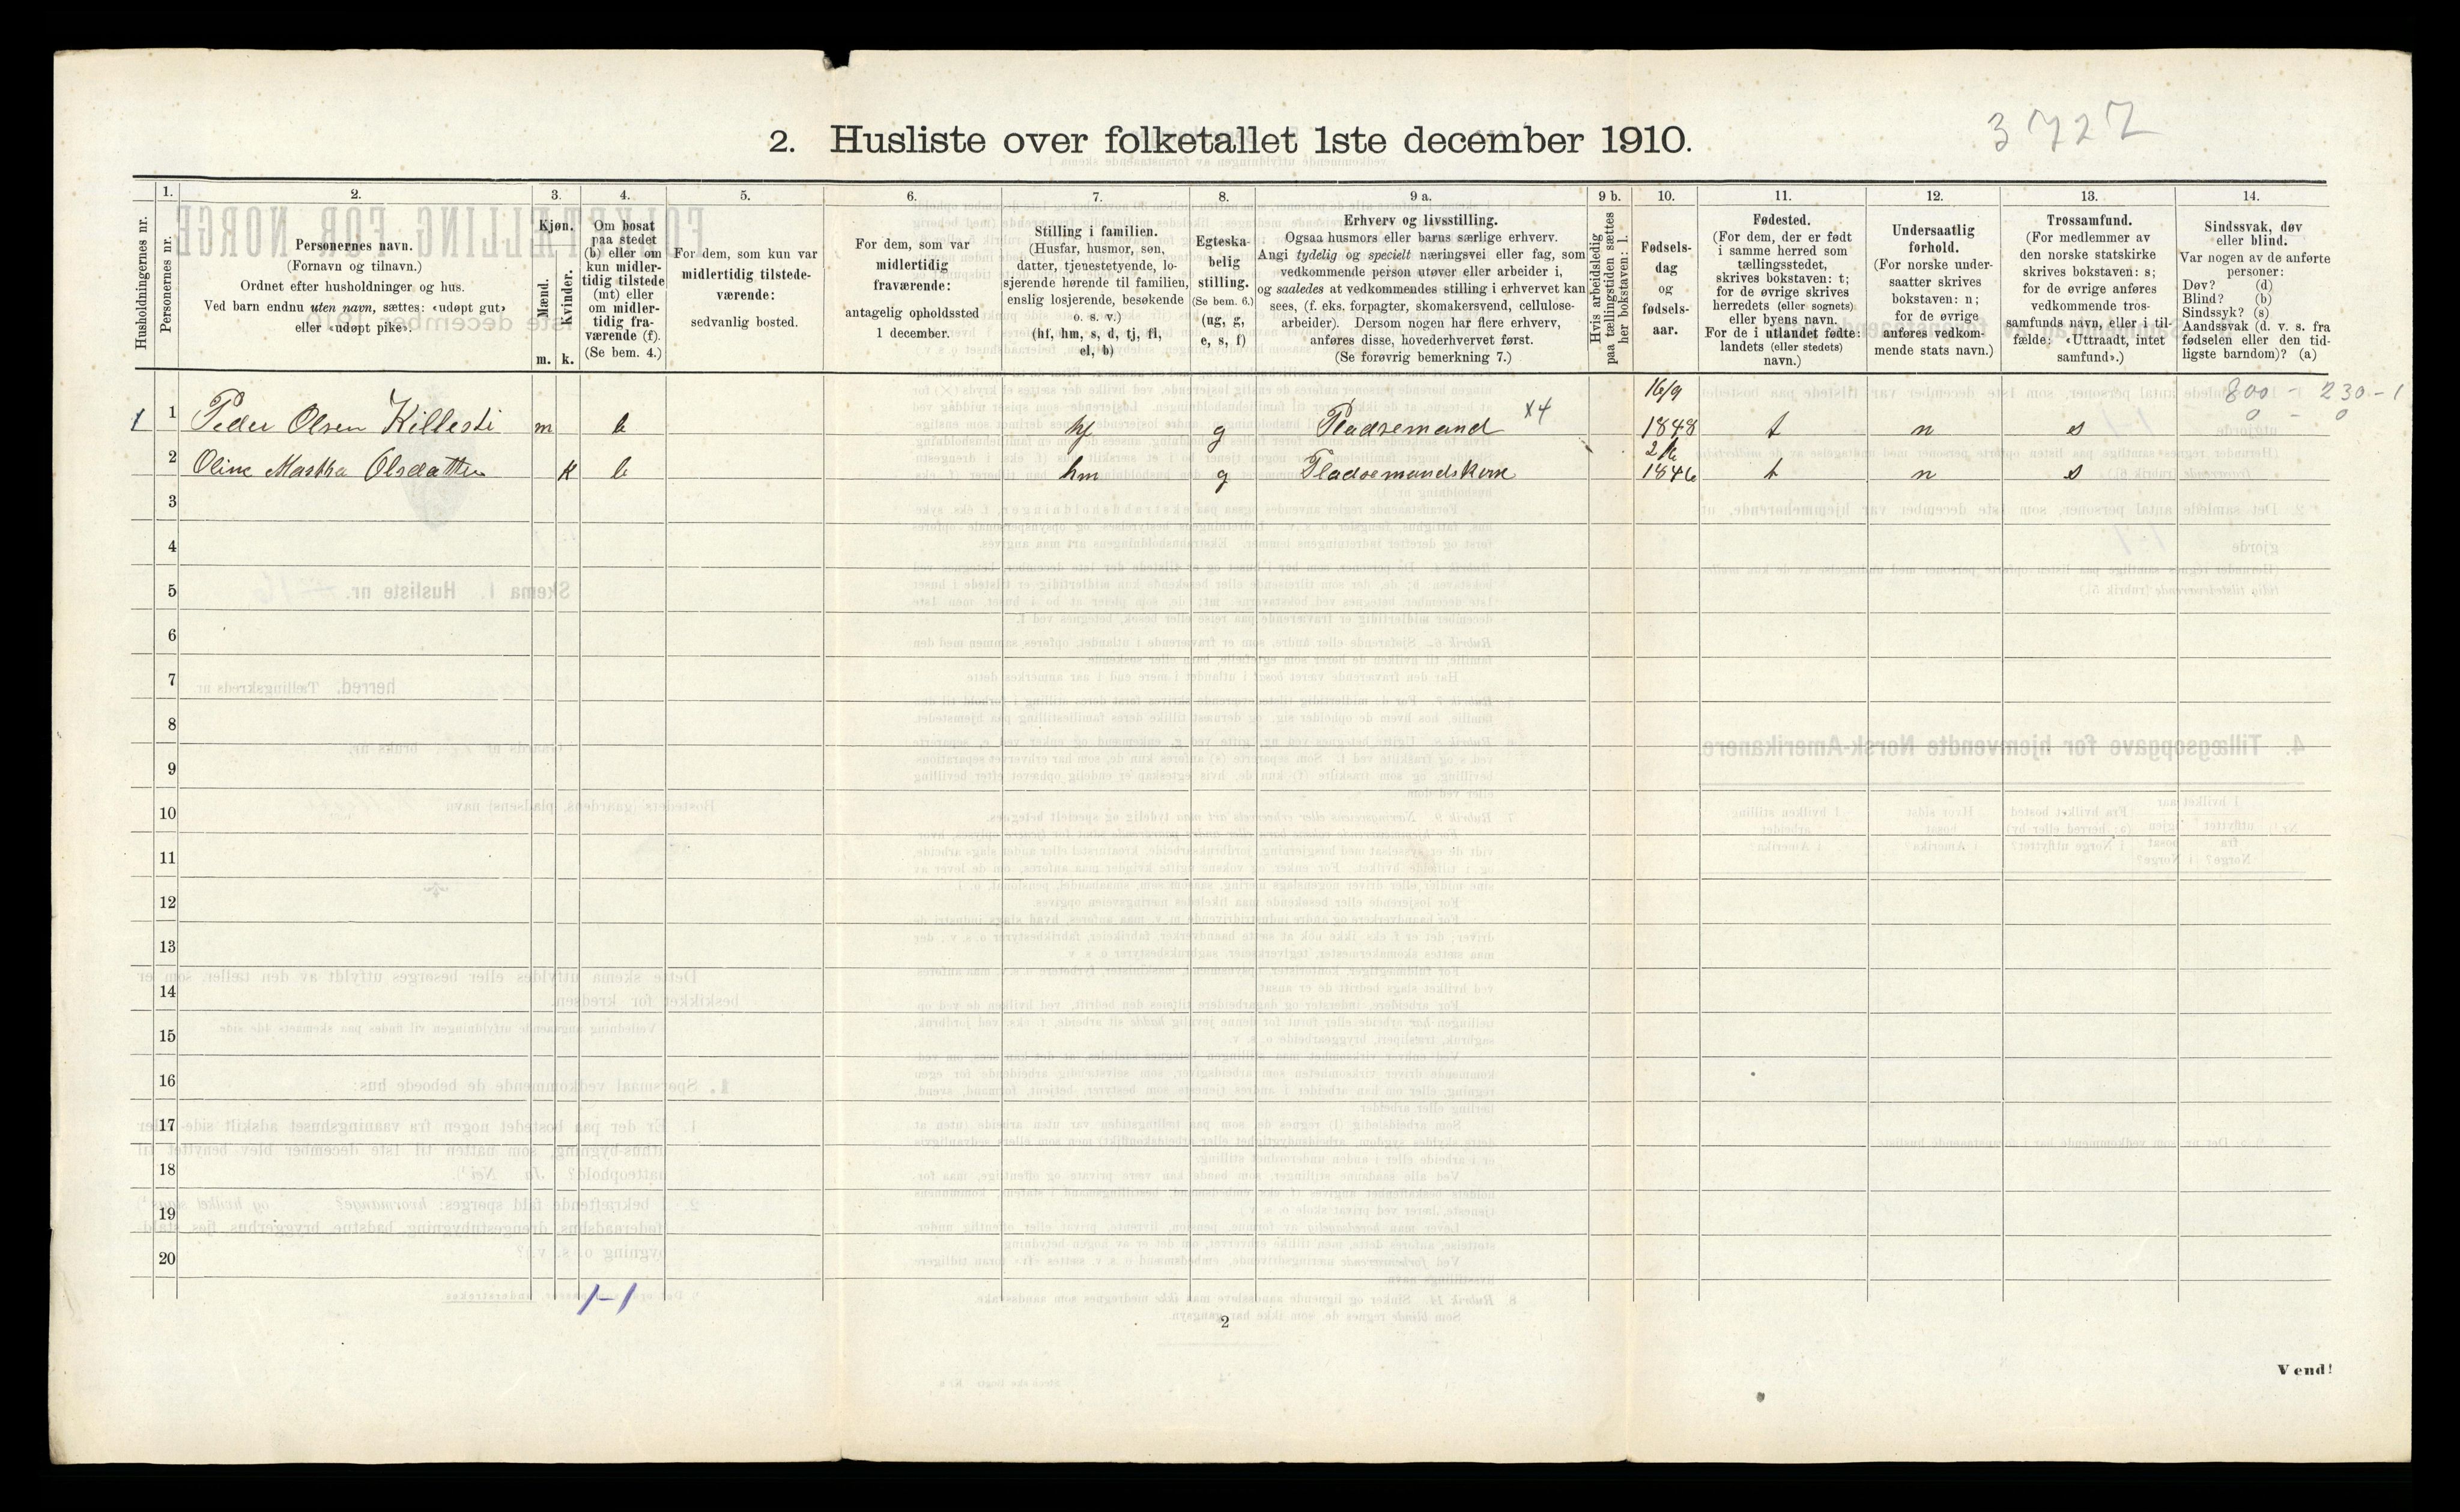 3727
2. Husliste over folketallet 1ste december 1910.
Husholdningernes nr.
1.
Personernes nr.
2.
Personernes navn.
(Fornavn og tilnavn.)
Ordnet efter husholdninger og hus.
Ved barn endnu uten navn, sættes: «udøpt gut»
eller «udøpt pike».
3.
Kjøn.
Mænd.
Kvinder.
m. k.
4.
Om bosat
paa stedet
(b) eller om
kun midler-
tidig tilstede
(mt) eller
om midler-
tidig fra-
værende (f).
(Se bem. 4.)
5.
For dem, som kun var
midlertidig tilstede-
værende:
sedvanlig bosted.
6.
For dem, som var
midlertidig
fraværende:
antagelig opholdssted
1 december.
7.
Stilling i familien.
(Husfar, husmor, søn,
datter, tjenestetyende, lo-
sjerende hørende til familien,
enslig losjerende, besøkende
o. s. v.)
(hf, hm, s, d, tj, fl,
el, b)
8.
Egteska-
belig
stilling.
(Se bem. 6.)
(ug, g,
e, s, f)
9 a.
Erhverv og livsstilling.
Ogsaa husmors eller barns særlige erhverv.
Angi tydelig og specielt næringsvei eller fag, som
vedkommende person utøver eller arbeider i,
og saaledes at vedkommendes stilling i erhvervet kan
sees, (f. eks. forpagter, skomakersvend, cellulose-
arbeider). Dersom nogen har flere erhverv,
anføres disse, hovederhvervet først.
(Se forøvrig bemerkning 7.)
9 b.
Hvis arbeidsledig
paa tællingstiden sættes
her bokstaven: l.
10.
Fødsels-
dag
og
fødsels-
aar.
11.
Fødested.
(For dem, der er født
i samme herred som
tællingsstedet,
skrives bokstaven: t;
for de øvrige skrives
herredets (eller sognets)
eller byens navn.
For de i utlandet fødte:
landets (eller stedets)
navn.)
12.
Undersaatlig
forhold.
(For norske under-
saatter skrives
bokstaven: n;
for de øvrige
anføres vedkom-
mende stats navn.)
13.
Trossamfund.
(For medlemmer av
den norske statskirke
skrives bokstaven: s;
for de øvrige anføres
vedkommende tros-
samfunds navn, eller i til-
fælde: «Uttraadt, intet
samfund».)
14.
Sindssvak, døv
eller blind.
Var nogen av de anførte
personer:
Døv? (d)
Blind? (b)
Sindssyk? (s)
Aandssvak (d. v. s. fra
fødselen eller den tid-
ligste barndom)? (a)
16/9 800 - 230 - 1
1 1 Peder Olsen Killesti m b hf g Pladsemand X4 1848 t n s 0 - 0
2 Oline Martha Olsdatter k b hm g Pladsemandskone 1846 t n s
3
4
5
6
7
8
9
10
11
12
13
14
15
16
17
18
19
20
1-1
2
Vend!